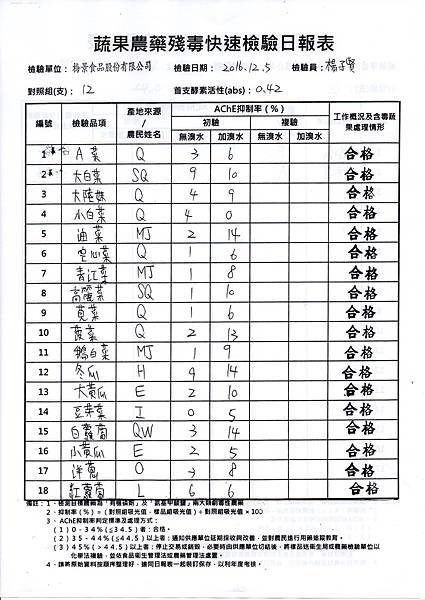 蔬果農藥殘毒快速檢驗日報表
檢驗單位：梅景食品股份有限公司 檢驗日期：2016.12.5 檢驗員：楊子賢
對照組(支)：12 首支酵素活性(abs)：0.42
編號 檢驗品項 產地來源/農民姓名 AChE抑制率(%) 工作概況及含毒蔬果處理情形
初驗 複驗
無溴水 加溴水 無溴水 加溴水
1 A菜 Q 3 6 合格
2 大白菜 SQ 9 10 合格
3 大陸妹 Q 4 9 合格
4 小白菜 Q 4 0 合格
5 油菜 MJ 2 14 合格
6 空心菜 Q 1 6 合格
7 青江菜 MJ 1 8 合格
8 高麗菜 SQ 1 10 合格
9 莧菜 Q 1 6 合格
10 菠菜 Q 2 13 合格
11 鵝白菜 MJ 1 9 合格
12 冬瓜 H 9 14 合格
13 大黃瓜 E 2 10 合格
14 豆芽菜 I 0 5 合格
15 白蘿蔔 QW 3 14 合格
16 小黃瓜 E 2 5 合格
17 洋蔥 O 3 8 合格
18 紅蘿蔔 L 6 6 合格
備註：1、檢測目標農藥為「有機磷劑」及「氨基甲酸鹽」兩大類劇毒性農藥
2、抑制率(%)=(對照組吸光值-樣品組吸光值)÷對照組吸光值×100
3、AChE抑制率判定標準及處理方式：
(1)0-34%(≦34.5)者：合格。
(2)35-44%(≦44.5)以上者：通知供應單位延期採收與改善，並對農民進行用藥追蹤教育。
(3)45%(>44.5)以上者：停止交易或銷毀，必要時由供應單位切結後，將樣品送衛生局或農藥檢驗單位以
化學法複驗，並依食品衛生管理法或農藥管理法處置。
4、請將原始資料按順序整理好，連同日報表一起裝訂保存，以利年度考核。